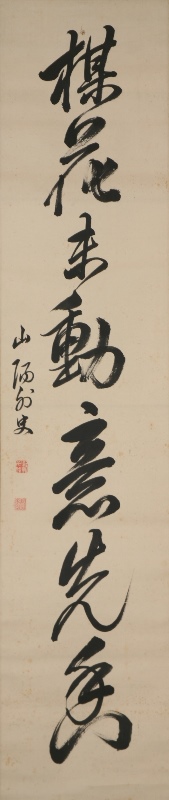 楳花未動意先香
山陽外史